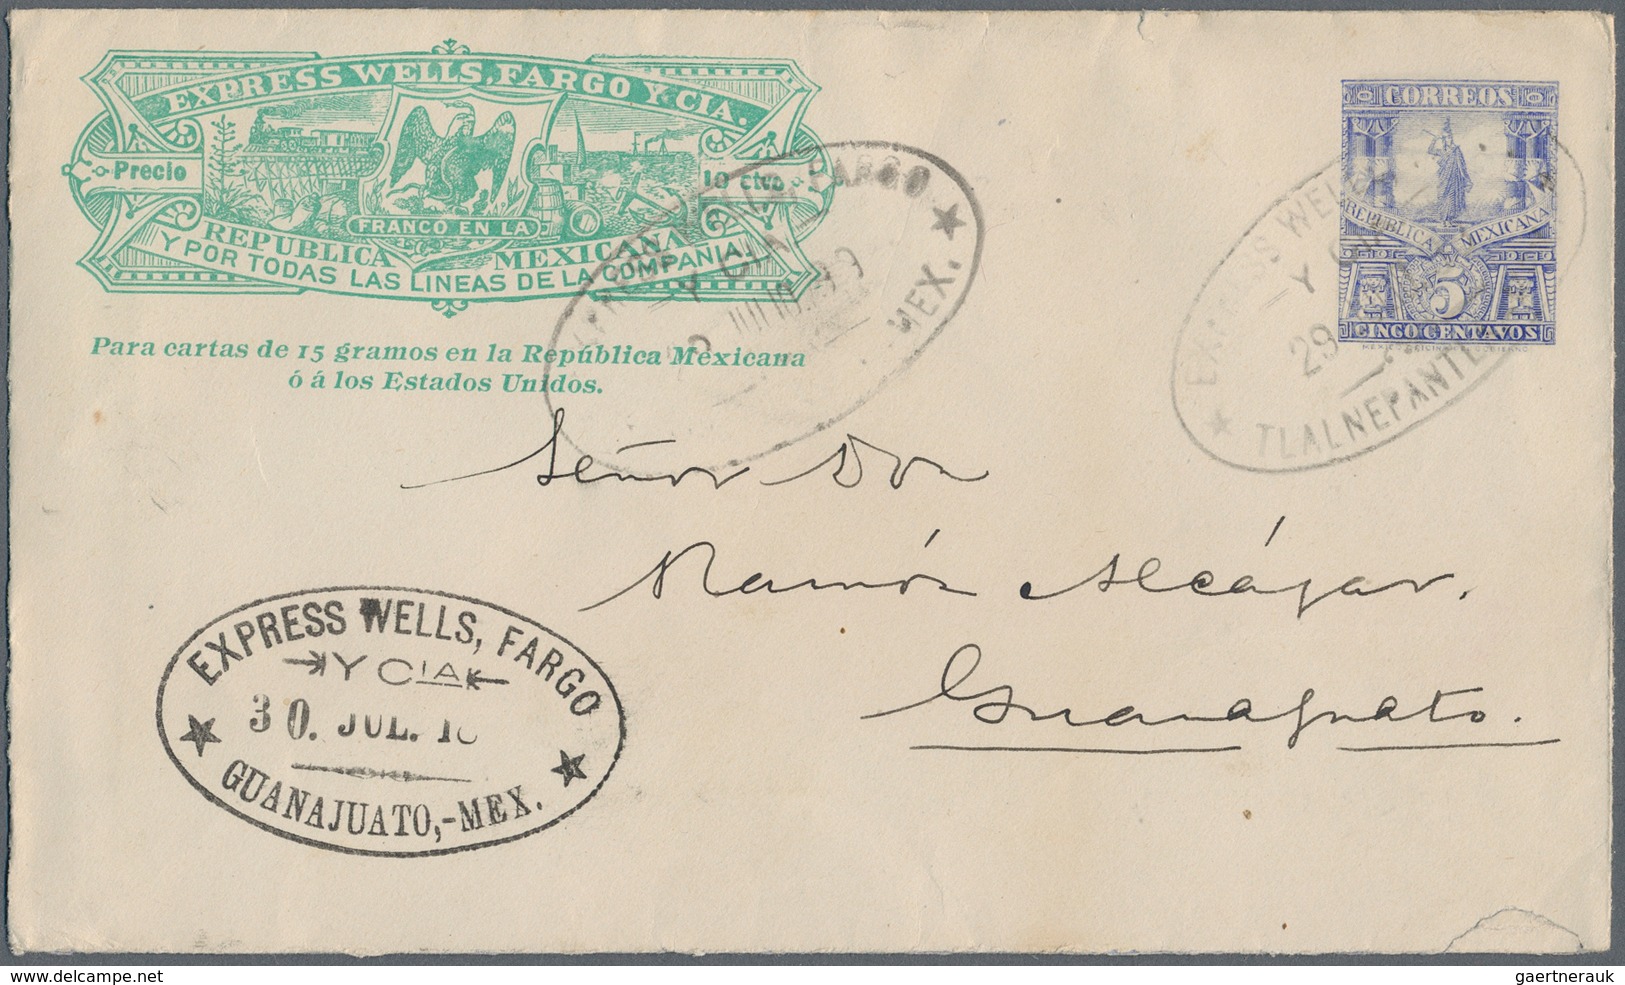 EXPRESS WELLS, FARGO Y CIA.
Precio
10 ctvs.
FRANCO EN LA
REPUBLICA MEXICANA
Y POR TODAS LAS LINEAS DE LA COMPAÑIA.
Para cartas de 15 gramos en la República Mexicana
ó á los Estados Unidos.
CORREOS
REPUBLICA MEXICANA
5
CINCO CENTAVOS
FARGO
Y CIA
MEX.
EXPRESS WELLS
Y
29
TLALNEPANTL
Señor Don
Ramón Alcázar.
Guanajuato.
EXPRESS WELLS, FARGO
Y CIA
30. JUL. 18
GUANAJUATO,-MEX.
www.delcampe.net
gaertnerauk